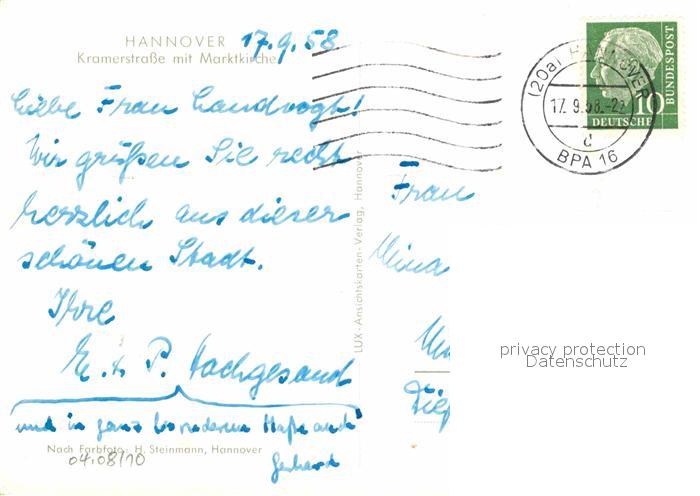 HANNOVER 17.9.58
Kramerstraße mit Marktkirche
Liebe Frau Landvogt!
Wir grüßen Sie recht
herzlich aus dieser
schönen Stadt.
Ihre
E. + P. Hochgesand
und in ganz besonderem Maße auch
Gerhard
Nach Farbfoto: H. Steinmann, Hannover
04.08/10
LUX-Ansichtskarten-Verlag, Hannover
Frau
Mina
privacy protection
Datenschutz
(20a) HANNOVER
17. 9.58.-22
d
BPA 16
10
DEUTSCHE
BUNDESPOST